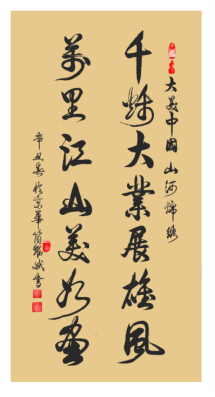 大美中國 山河錦綉
千秋大業展雄風
萬里江山美如畫
辛丑春於京華書